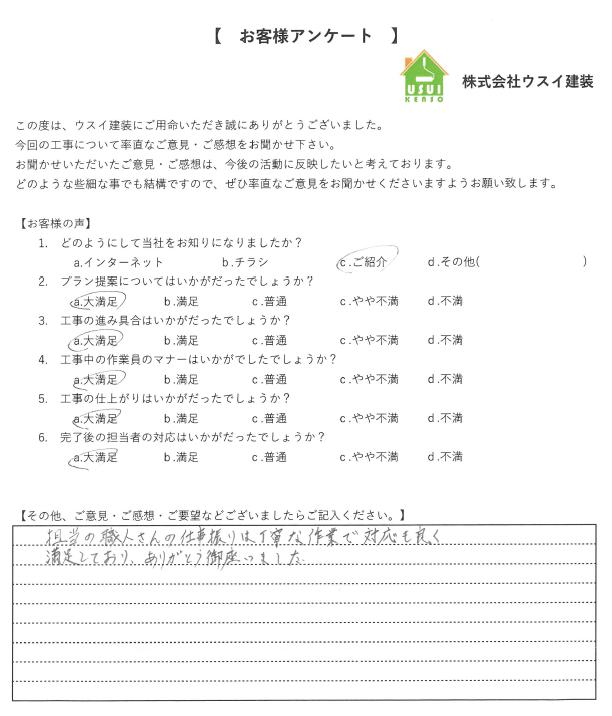 【　お客様アンケート　】
USUI
KENSO
株式会社ウスイ建装
この度は、ウスイ建装にご用命いただき誠にありがとうございました。
今回の工事について率直なご意見・ご感想をお聞かせ下さい。
お聞かせいただいたご意見・ご感想は、今後の活動に反映したいと考えております。
どのような些細な事でも結構ですので、ぜひ率直なご意見をお聞かせくださいますようお願い致します。
【お客様の声】
1.　どのようにして当社をお知りになりましたか？
a.インターネット　b.チラシ　c.ご紹介　d.その他(　　　)
2.　プラン提案についてはいかがだったでしょうか？
a.大満足　b.満足　c.普通　c.やや不満　d.不満
3.　工事の進み具合はいかがだったでしょうか？
a.大満足　b.満足　c.普通　c.やや不満　d.不満
4.　工事中の作業員のマナーはいかがでしたでしょうか？
a.大満足　b.満足　c.普通　c.やや不満　d.不満
5.　工事の仕上がりはいかがだったでしょうか？
a.大満足　b.満足　c.普通　c.やや不満　d.不満
6.　完了後の担当者の対応はいかがだったでしょうか？
a.大満足　b.満足　c.普通　c.やや不満　d.不満
【その他、ご意見・ご感想・ご要望などございましたらご記入ください。】
担当の職人さんの仕事振りは丁寧な作業で対応も良く
満足しており、ありがとう御座いました